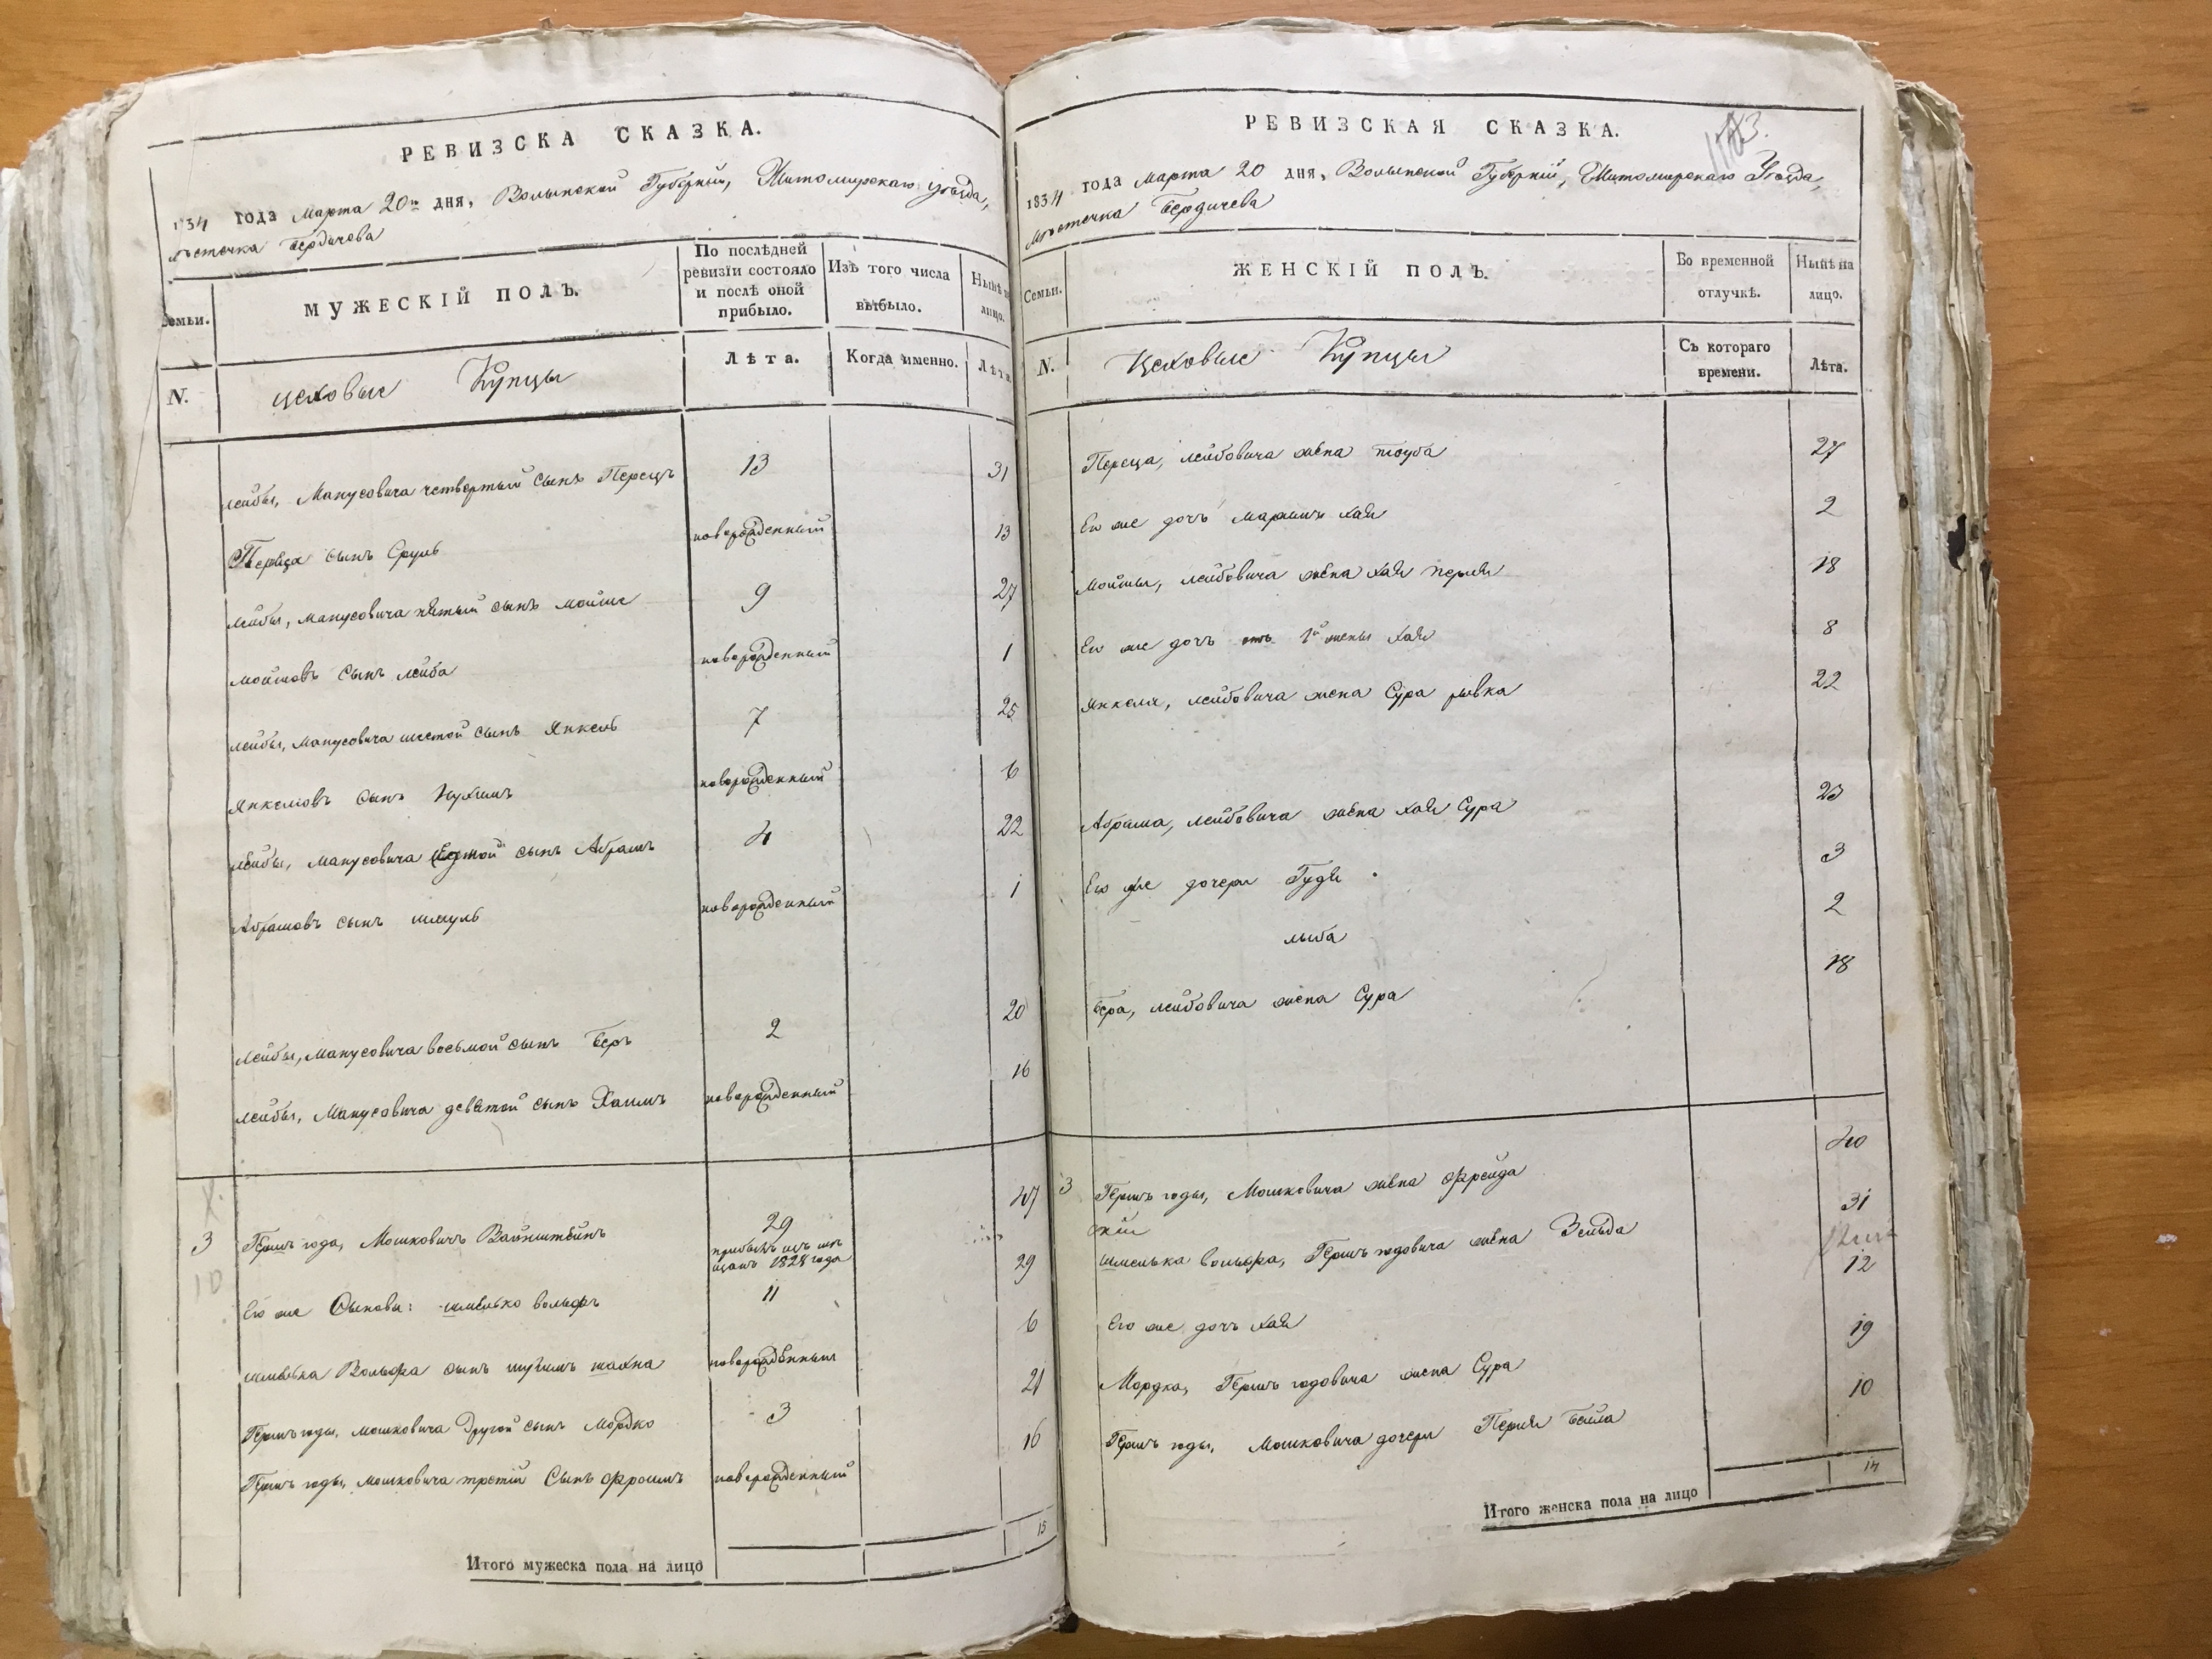 РЕВИЗСКА СКАЗКА.
1834 года Марта 20го дня, Волынской Губерніи, Житомирскаго уѣзда,
мѣстечка Бердичева
Семьи.
МУЖЕСКІЙ ПОЛЪ.
По послѣдней ревизіи состояло и послѣ оной прибыло.
Изъ того числа выбыло.
Нынѣ на лицо.
N.
цеховые Купцы
Лѣта.
Когда именно.
Лѣта
Лейбы, Манусовича четвертый сынъ Перецъ 13 31
Переца сынъ Сруль новорожденный 13
Лейбы, Манусовича пятый сынъ Мойше 9 27
Мойшовъ сынъ Лейба новорожденный 1
Лейбы, Манусовича шестой сынъ Янкель 7 25
Янкелювъ сынъ Нухимъ новорожденный 6
Лейбы, Манусовича седмой сынъ Абрамъ 4 22
Абрамовъ сынъ Шмуль новорожденный 1
Лейбы, Манусовича восьмой сынъ Беръ 2 20
Лейбы, Манусовича девятой сынъ Хаимъ новорожденный 16
3 Гершъ года, Мошковичъ Вайнштейнъ 29 47
прибылъ изъ мѣ
щанъ 1828 года
10
Его же Сыновья: Шмелько Вольфъ 11 29
Шмелька Вольфа сынъ шахна новорожденный 6
Гершъ годы, Мошковича Другой сынъ Мордко 3 21
Гершъ годы, Мошковича третій Сынъ Фроимъ новорожденный 16
Итого мужеска пола на лицо 15
РЕВИЗСКАЯ СКАЗКА.
1834 года Марта 20 дня, Волынской Губерніи, Житомирскаго Уѣзда,
мѣстечка Бердичева
Семьи.
ЖЕНСКІЙ ПОЛЪ.
Во временной отлучкѣ.
Нынѣ на лицо.
N.
Цеховые Купцы
Съ котораго времени.
Лѣта.
Переца, Лейбовича жена Тауба 27
Его же дочь Марьимъ Хая 2
Мойши, Лейбовича жена Хая Перля 18
Его же дочь отъ 1й жены Хая 8
Янкеля, Лейбовича жена Сура Рывка 22
Абрама, Лейбовича жена Хая Сура 23
Его же дочери Гудя 3
Лыба 2
Бера, Лейбовича жена Сура 18
3 Гершъ годы, Мошковича жена Фрейда 40
Шмелька Вольфа, Гершъ годовича жена Зельда 31
Его же дочь Хая 12
Мордка, Гершъ годовича жена Сура 19
Гершъ годы, Мошковича дочери Перля Бейла 10
Итого женска пола на лицо 14